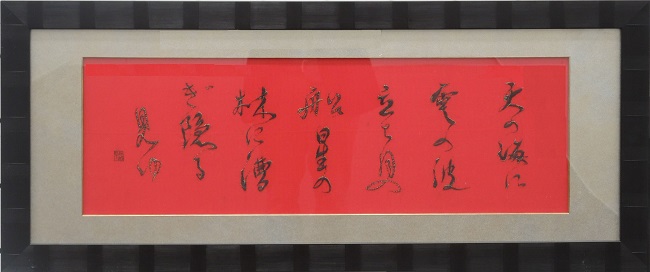 天の海に
雲の波
立ち月の
船星の
林に漕
ぎ隠る
見ゆ